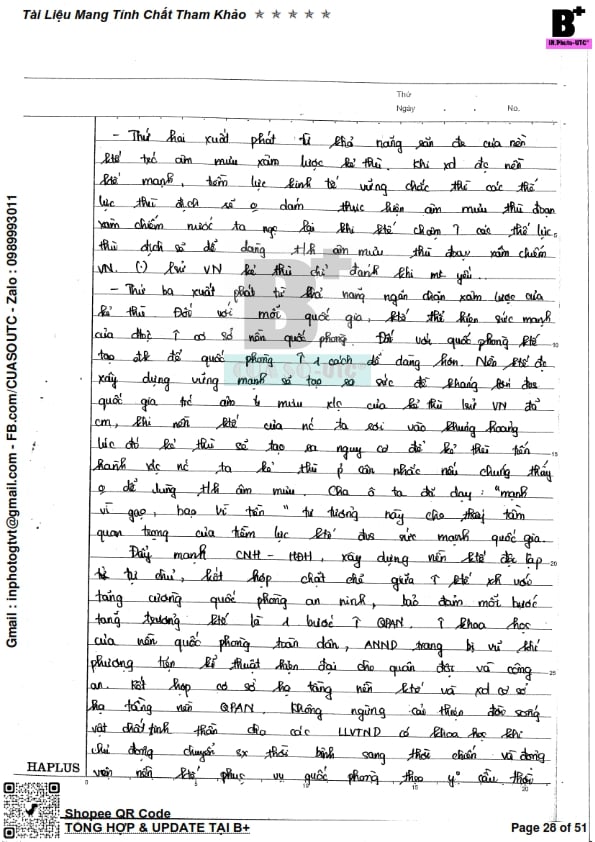 Tài Liệu Mang Tính Chất Tham Khảo ★ ★ ★ ★ ★
B+
IN.Photo-UTC
Thứ
Ngày . . No.
- Thứ hai xuất phát từ khả năng răn đe của nền
ktế trc âm mưu xâm lược kẻ thù. Khi xd đc nền
ktế mạnh, tiềm lực kinh tế vững chắc thì các thế
lực thù địch sẽ o dám thực hiện âm mưu thủ đoạn
xâm chiếm nước ta ngc lại khi ktế chậm ↑ các thế lực
thù địch sẽ dễ dàng t/h âm mưu thủ đoạn xâm chiếm
VN. (·) lsử VN kẻ thù chỉ đánh khi mk yếu.
- Thứ ba xuất phát từ khả năng ngăn chặn xâm lược của
kẻ thù. Đối với mỗi quốc gia, ktế thể hiện sức mạnh
của ↑ cơ sở nền quốc phòng. Đối với quốc phòng ktế
tạo đk để quốc phòng ↑ 1 cách dễ dàng hơn. Nền ktế đc
xây dựng vững mạnh sẽ tạo ra sức đề kháng
quốc gia trc âm mưu xlc của kẻ thù lsử VN đã
cm, khi nền ktế của nc ta rơi vào khủng hoảng
lúc đó kẻ thù sẽ tạo ra nguy cơ để kẻ thù tiến
hành xlc nc ta kẻ thù p cân nhắc nếu chúng thấy
o dễ dùng t/h âm mưu. Cha ô ta đã dạy: "mạnh
vì gạo, bạo vì tiền" tư tưởng này cho thấy tầm
quan trọng của tiềm lực ktế đvs sức mạnh quốc gia.
Đẩy mạnh CNH - HĐH, xây dựng nền ktế độc lập
tự chủ, kết hợp chặt chẽ giữa ↑ ktế xh với
tăng cường quốc phòng an ninh, bảo đảm mỗi bước
tăng trưởng ktế là 1 bước ↑ QPAN. ↑ khoa học
của nền quốc phòng toàn dân, ANND trang bị vũ khí
phương tiện kĩ thuật hiện đại cho quân đội và công
an. Kết hợp cơ sở hạ tầng nền ktế và xd cơ sở
hạ tầng nền QPAN. Không ngừng cải thiện đời sống
vật chất tinh thần cho các LLVTND có khoa học khi
chủ động chuyển sx thời bình sang thời chiến và động
viên nền ktế phục vụ quốc phòng theo y/ cầu thời
5
10
15
20
25
B+
CUASO-UTC
Gmail : inphotogtvt@gmail.com - FB.com/CUASOUTC - Zalo : 0989993011
HAPLUS
0 5 10 15 20
Shopee QR Code
TỔNG HỢP & UPDATE TẠI B+
Page 28 of 51